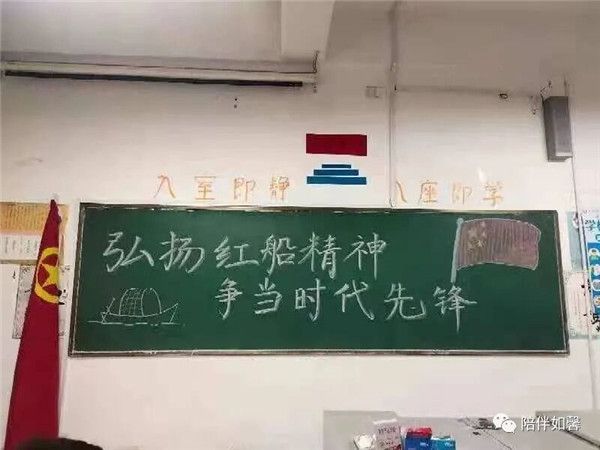 入室即静
入座即学
弘扬红船精神
争当时代先锋
陪伴如馨